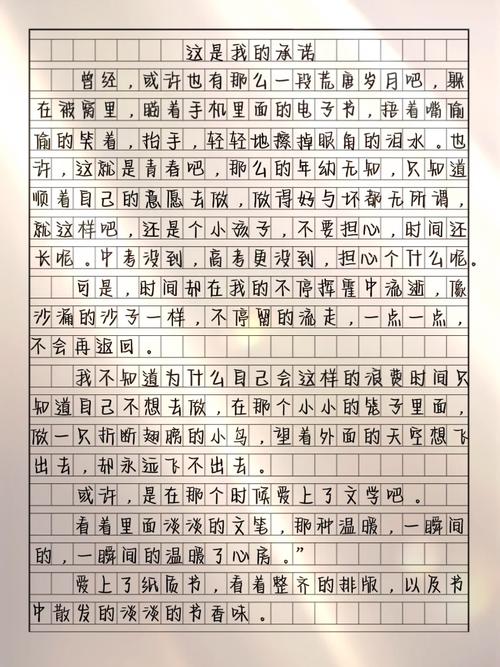 这是我的承诺
曾经，或许也有那么一段荒唐岁月吧，躲
在被窝里，瞄着手机里面的电子书，捂着嘴偷
偷的笑着，抬手，轻轻地擦掉眼角的泪水。也
许，这就是青春吧，那么的年纳无知，只知道
顺着自己的意愿去做，做得好与坏都无所谓，
就这样吧，还是个小孩子，不要担心，时间还
长呢。中考没到，高考更没到，担心个什么呢。
可是，时间却在我的不停挥霍中流逝，像
沙漏的沙子一样，不停留的流走，一点一点，
不会再返回。
我不知道为什么自己会这样的浪费时间只
知道自己不想去做，在那个小小的笼子里面，
做一只折断翅膀的小鸟，望着外面的天空想飞
出去，却永远飞不出去。
或许，是在那个时候爱上了文学吧。
看着里面淡淡的文笔，那种温暖，一瞬间
的，一瞬间的温暖了心房。”
爱上了纸质书，看着整齐的排版，以及书
中散发的淡淡的书香味。